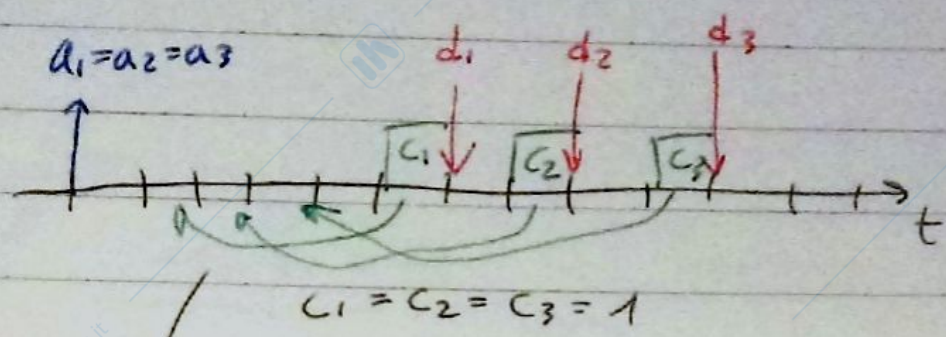 a₁=a₂=a₃ d₁ d₂ d₃
C₁ C₂ C₃
t
C₁ = C₂ = C₃ = 1